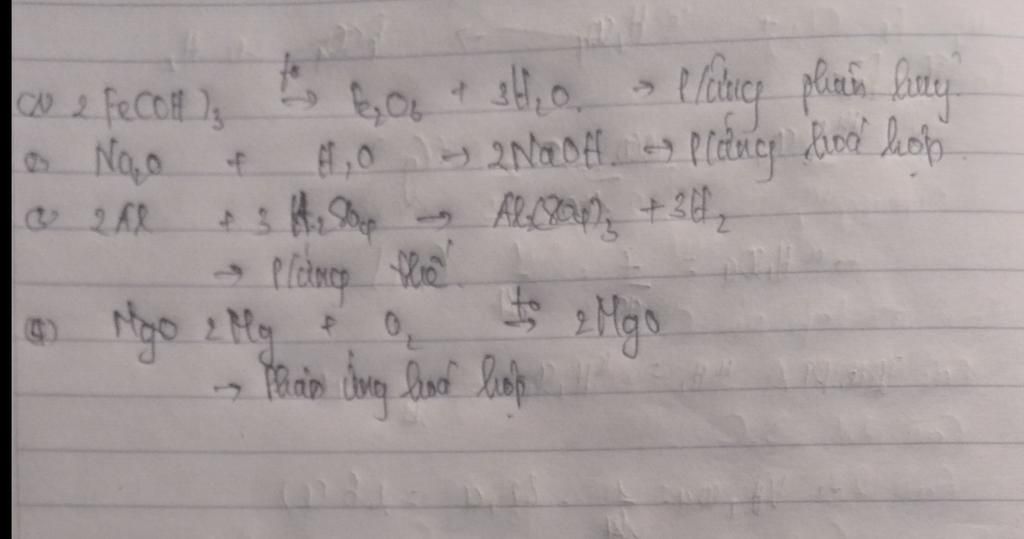 (1) 2 Fe(OH)3 t°→ Fe2O3 + 3H2O. → P/ứng phân huỷ.
(2) Na2O + H2O → 2NaOH. → P/ứng hoá hợp.
(3) 2Al + 3 H2SO4 → Al2(SO4)3 + 3H2
→ P/ứng thế.
(4) MgO 2Mg + O2 t°→ 2MgO
→ Phản ứng hoá hợp